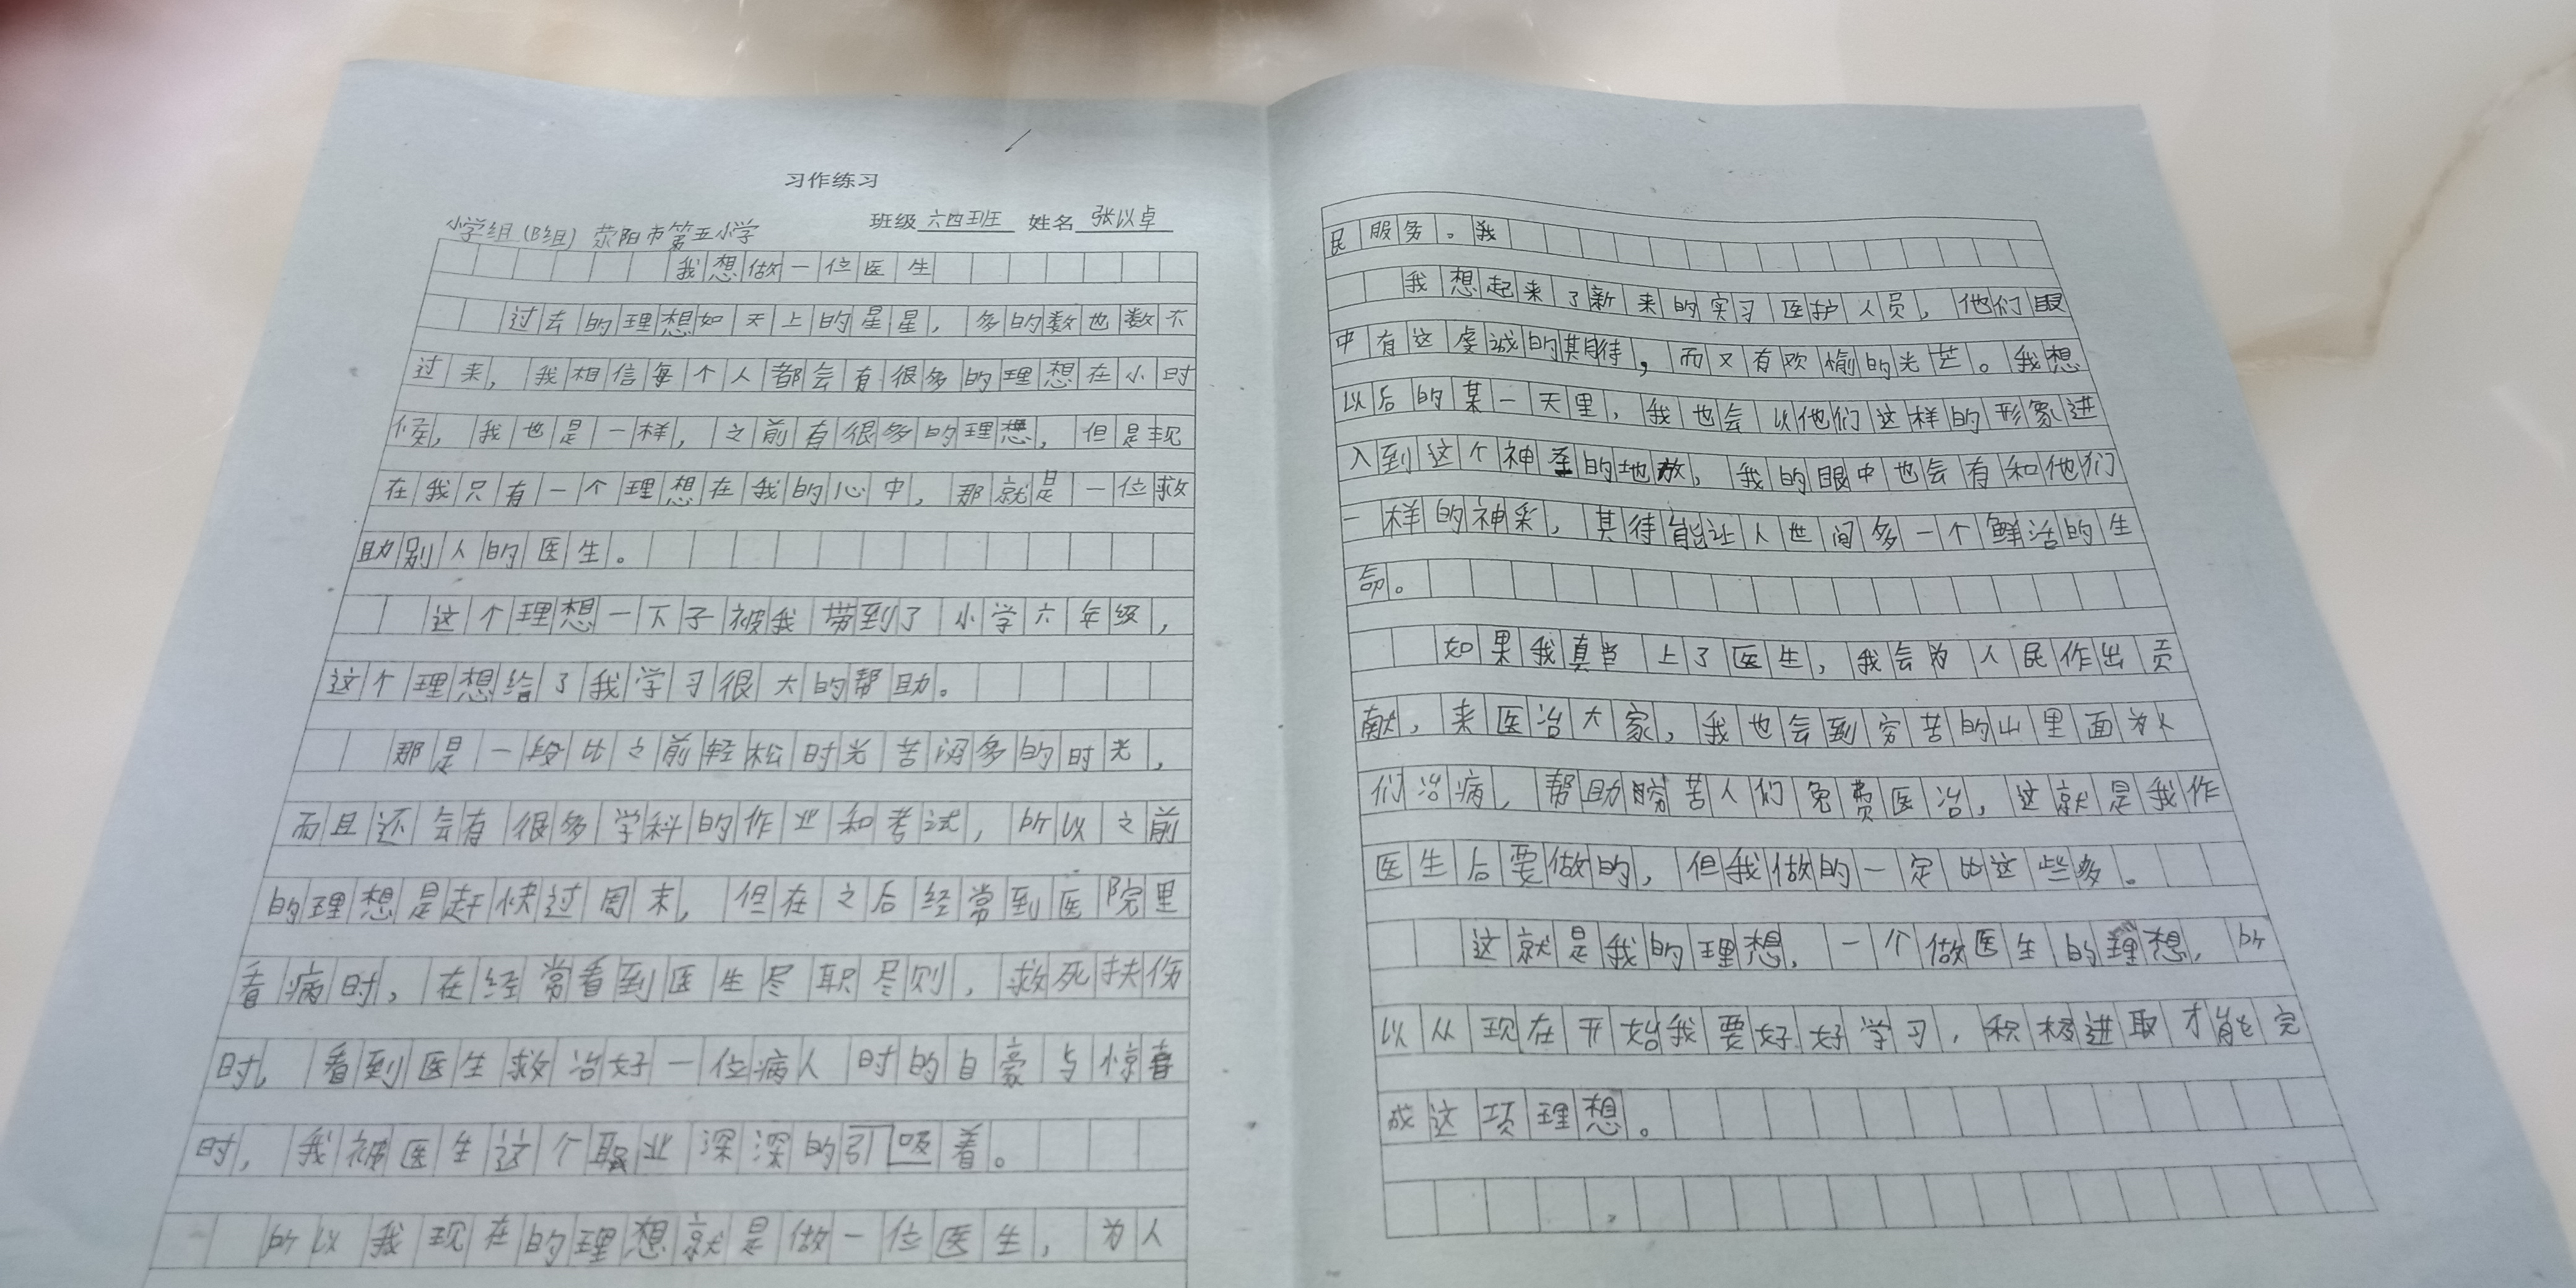 习作练习
小学组(B组) 荥阳市第五小学 班级 六四班 姓名 张以卓
我想做一位医生
过去的理想如天上的星星，多的数也数不
过来，我相信每个人都会有很多的理想在小时
候，我也是一样，之前有很多的理想，但是现
在我只有一个理想在我的心中，那就是一位救
助别人的医生。
这个理想一下子被我带到了小学六年级，
这个理想给了我学习很大的帮助。
那是一段比之前轻松时光苦闷多的时光，
而且还会有很多学科的作业和考试，所以之前
的理想是赶快过周末，但在之后经常到医院里
看病时，在经常看到医生尽职尽则，救死扶伤
时，看到医生救治好一位病人时的自豪与惊喜
时，我被医生这个职业深深的引吸着。
所以我现在的理想就是做一位医生，为人
民服务。我
我想起来了新来的实习医护人员，他们眼
中有这虔诚的期待，而又有欢愉的光芒。我想
以后的某一天里，我也会以他们这样的形象进
入到这个神圣的地放，我的眼中也会有和他们
一样的神彩，其待能让人世间多一个鲜活的生
命。
如果我真当上了医生，我会为人民作出贡
献，来医治大家，我也会到穷苦的山里面为人
们治病，帮助穷苦人们免费医治，这就是我作
医生后要做的，但我做的一定比这些多。
这就是我的理想，一个做医生的理想，所
以从现在开始我要好好学习，积极进取才能完
成这项理想。